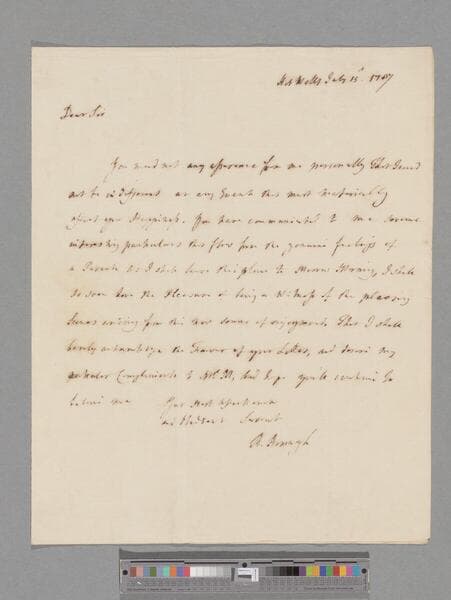 Hot Wells July 15th 1787
Dear Sir
You need not any assurance from me personally that I could
not be indifferent at any Event that must materially
affect your Happiness. You have communicated to me some
interesting particulars that flow from the genuine feelings of
a Parent. As I shall leave this place to Morrow Morning, I shall
so soon have the Pleasure of being a Witness of the pleasing
Scenes arising from this new source of enjoyment, that I shall
barely acknowledge the Favour of your Letter, and desire my
particular Compliments to Mrs. M, and hope you'll continue to
believe me Your Most
and Obedient Servant
R.